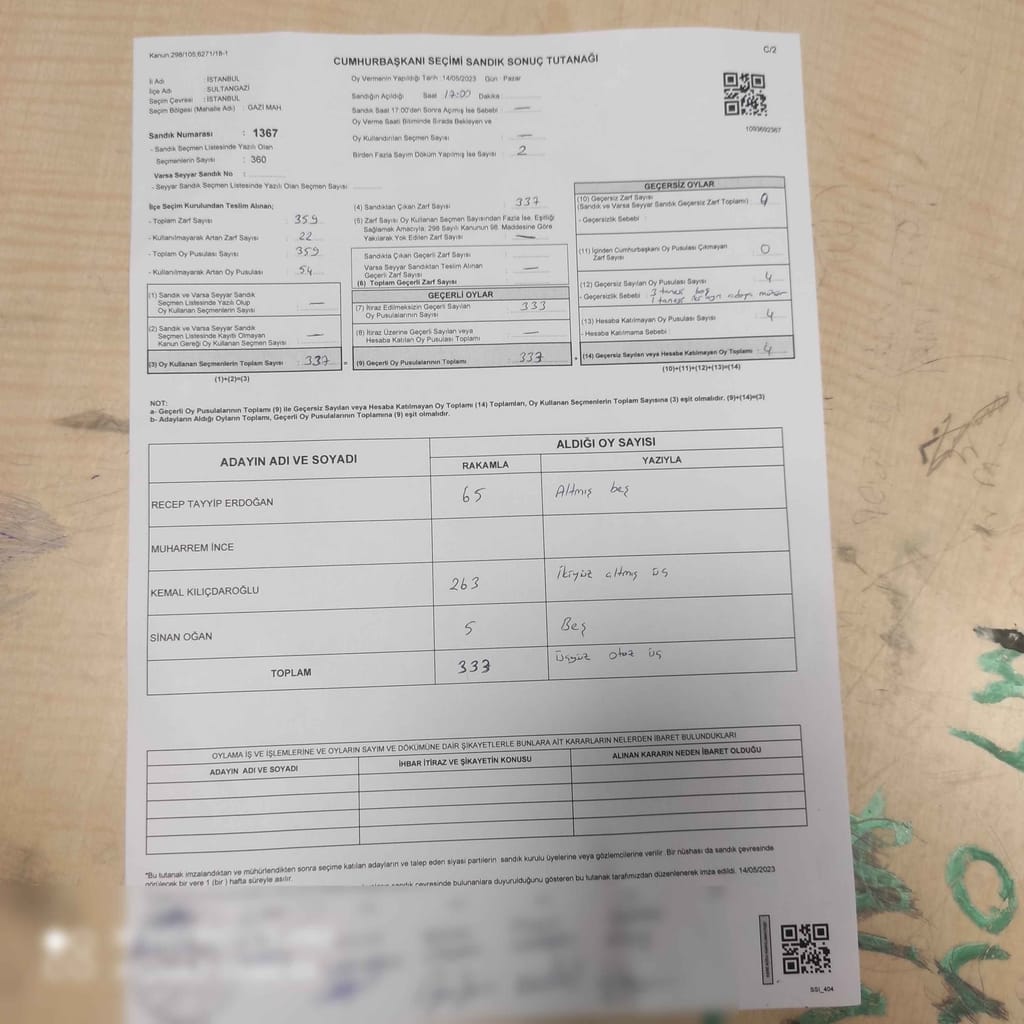 Kanun:298/105;6271/18-1
C/2
CUMHURBAŞKANI SEÇİMİ SANDIK SONUÇ TUTANAĞI
İl Adı : İSTANBUL
İlçe Adı : SULTANGAZİ
Seçim Çevresi : İSTANBUL
Seçim Bölgesi (Mahalle Adı) : GAZİ MAH.
Oy Vermenin Yapıldığı Tarih :14/05/2023 Gün : Pazar
Sandığın Açıldığı Saat 17:00 Dakika
Sandık Saat 17:00'den Sonra Açmış İse Sebebi —
Oy Verme Saati Bitiminde Sırada Bekleyen ve
Oy Kullandırılan Seçmen Sayısı —
Birden Fazla Sayım Döküm Yapılmış İse Sayısı 2
1093692367
Sandık Numarası : 1367
- Sandık Seçmen Listesinde Yazılı Olan
Seçmenlerin Sayısı : 360
Varsa Seyyar Sandık No :
- Seyyar Sandık Seçmen Listesinde Yazılı Olan Seçmen Sayısı
İlçe Seçim Kurulundan Teslim Alınan;
- Toplam Zarf Sayısı : 359
- Kullanılmayarak Artan Zarf Sayısı : 22
- Toplam Oy Pusulası Sayısı : 359
- Kullanılmayarak Artan Oy Pusulası : 54
(1) Sandık ve Varsa Seyyar Sandık
Seçmen Listesinde Yazılı Olup
Oy Kullanan Seçmenlerin Sayısı : —
(2) Sandık ve Varsa Seyyar Sandık
Seçmen Listesinde Kayıtlı Olmayan
Kanun Gereği Oy Kullanan Seçmen Sayısı : —
(3) Oy Kullanan Seçmenlerin Toplam Sayısı : 337 =
(1)+(2)=(3)
(4) Sandıktan Çıkan Zarf Sayısı : 337
(5) Zarf Sayısı Oy Kullanan Seçmen Sayısından Fazla İse, Eşitliği
Sağlamak Amacıyla, 298 Sayılı Kanunun 98. Maddesine Göre
Yakılarak Yok Edilen Zarf Sayısı : —
Sandıkta Çıkan Geçerli Zarf Sayısı
Varsa Seyyar Sandıktan Teslim Alınan
Geçerli Zarf Sayısı : —
(6) Toplam Geçerli Zarf Sayısı
GEÇERLİ OYLAR
(7) İtiraz Edilmeksizin Geçerli Sayılan
Oy Pusulalarının Sayısı : 333
(8) İtiraz Üzerine Geçerli Sayılan veya
Hesaba Katılan Oy Pusulası Toplamı : —
(9) Geçerli Oy Pusulalarının Toplamı : 337 +
GEÇERSİZ OYLAR
(10) Geçersiz Zarf Sayısı
(Sandık ve Varsa Seyyar Sandık Geçersiz Zarf Toplamı) :
- Geçersizlik Sebebi :
(11) İçinden Cumhurbaşkanı Oy Pusulası Çıkmayan
Zarf Sayısı : 0
(12) Geçersiz Sayılan Oy Pusulası Sayısı : 4
- Geçersizlik Sebebi : 3 tanesi boş
1 tanesi iki ayrı adaya mühür
(13) Hesaba Katılmayan Oy Pusulası Sayısı : 4
- Hesaba Katılmama Sebebi :
(14) Geçersiz Sayılan veya Hesaba Katılmayan Oy Toplamı : 4
(10)+(11)+(12)+(13)=(14)
NOT:
a- Geçerli Oy Pusulalarının Toplamı (9) ile Geçersiz Sayılan veya Hesaba Katılmayan Oy Toplamı (14) Toplamları, Oy Kullanan Seçmenlerin Toplam Sayısına (3) eşit olmalıdır. (9)+(14)=(3)
b- Adayların Aldığı Oyların Toplamı, Geçerli Oy Pusulalarının Toplamına (9) eşit olmalıdır.
ADAYIN ADI VE SOYADI
ALDIĞI OY SAYISI
RAKAMLA YAZIYLA
RECEP TAYYİP ERDOĞAN 65 Altmış beş
MUHARREM İNCE
KEMAL KILIÇDAROĞLU 263 İkiyüz altmış üç
SİNAN OĞAN 5 Beş
TOPLAM 333 Üçyüz otuz üç
OYLAMA İŞ VE İŞLEMLERİNE VE OYLARIN SAYIM VE DÖKÜMÜNE DAİR ŞİKAYETLERLE BUNLARA AİT KARARLARIN NELERDEN İBARET BULUNDUKLARI
ADAYIN ADI VE SOYADI İHBAR İTİRAZ VE ŞİKAYETİN KONUSU ALINAN KARARIN NEDEN İBARET OLDUĞU
*Bu tutanak imzalandıktan ve mühürlendikten sonra seçime katılan adayların ve talep eden siyasi partilerin sandık kurulu üyelerine veya gözlemcilerine verilir. Bir nüshası da sandık çevresinde
görülecek bir yere 1 (bir) hafta süreyle asılır.
sandık çevresinde bulunanlara duyurulduğunu gösteren bu tutanak tarafımızdan düzenlenerek imza edildi. 14/05/2023
SSI_404